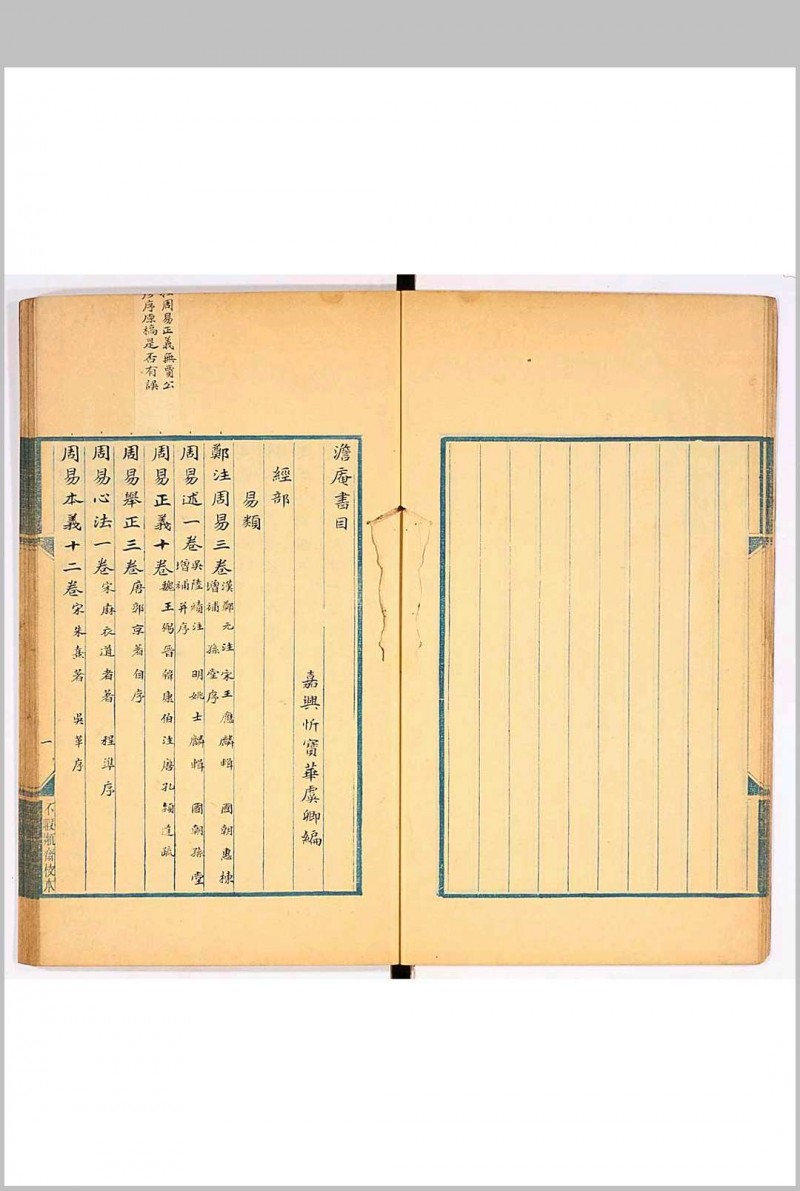 澹庵書目
嘉興忻寶華虞卿編
經部
易類
鄭注周易三卷 漢鄭元注 宋王應麟輯 國朝惠棟增補 孫堂序
周易述一卷 吳陸績注 明姚士麟輯 國朝孫堂增補并序
周易正義十卷 魏王弼晉韓康伯注唐孔穎達疏
周易舉正三卷 唐郭京著自序
周易心法一卷 宋麻衣道者著 程準序
周易本義十二卷 宋朱熹著 吳革序
周易正義無賈公
序原稿是否有誤
一
不暇嬾齋校本